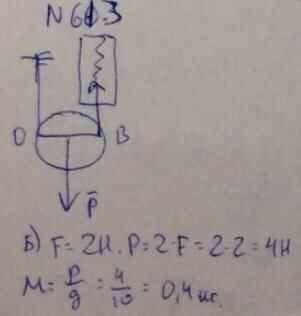 N 61.3
O
B
P̄
Б) F = 2Н. P = 2·F = 2·2 = 4Н
М = P/g = 4/10 = 0,4 кг.